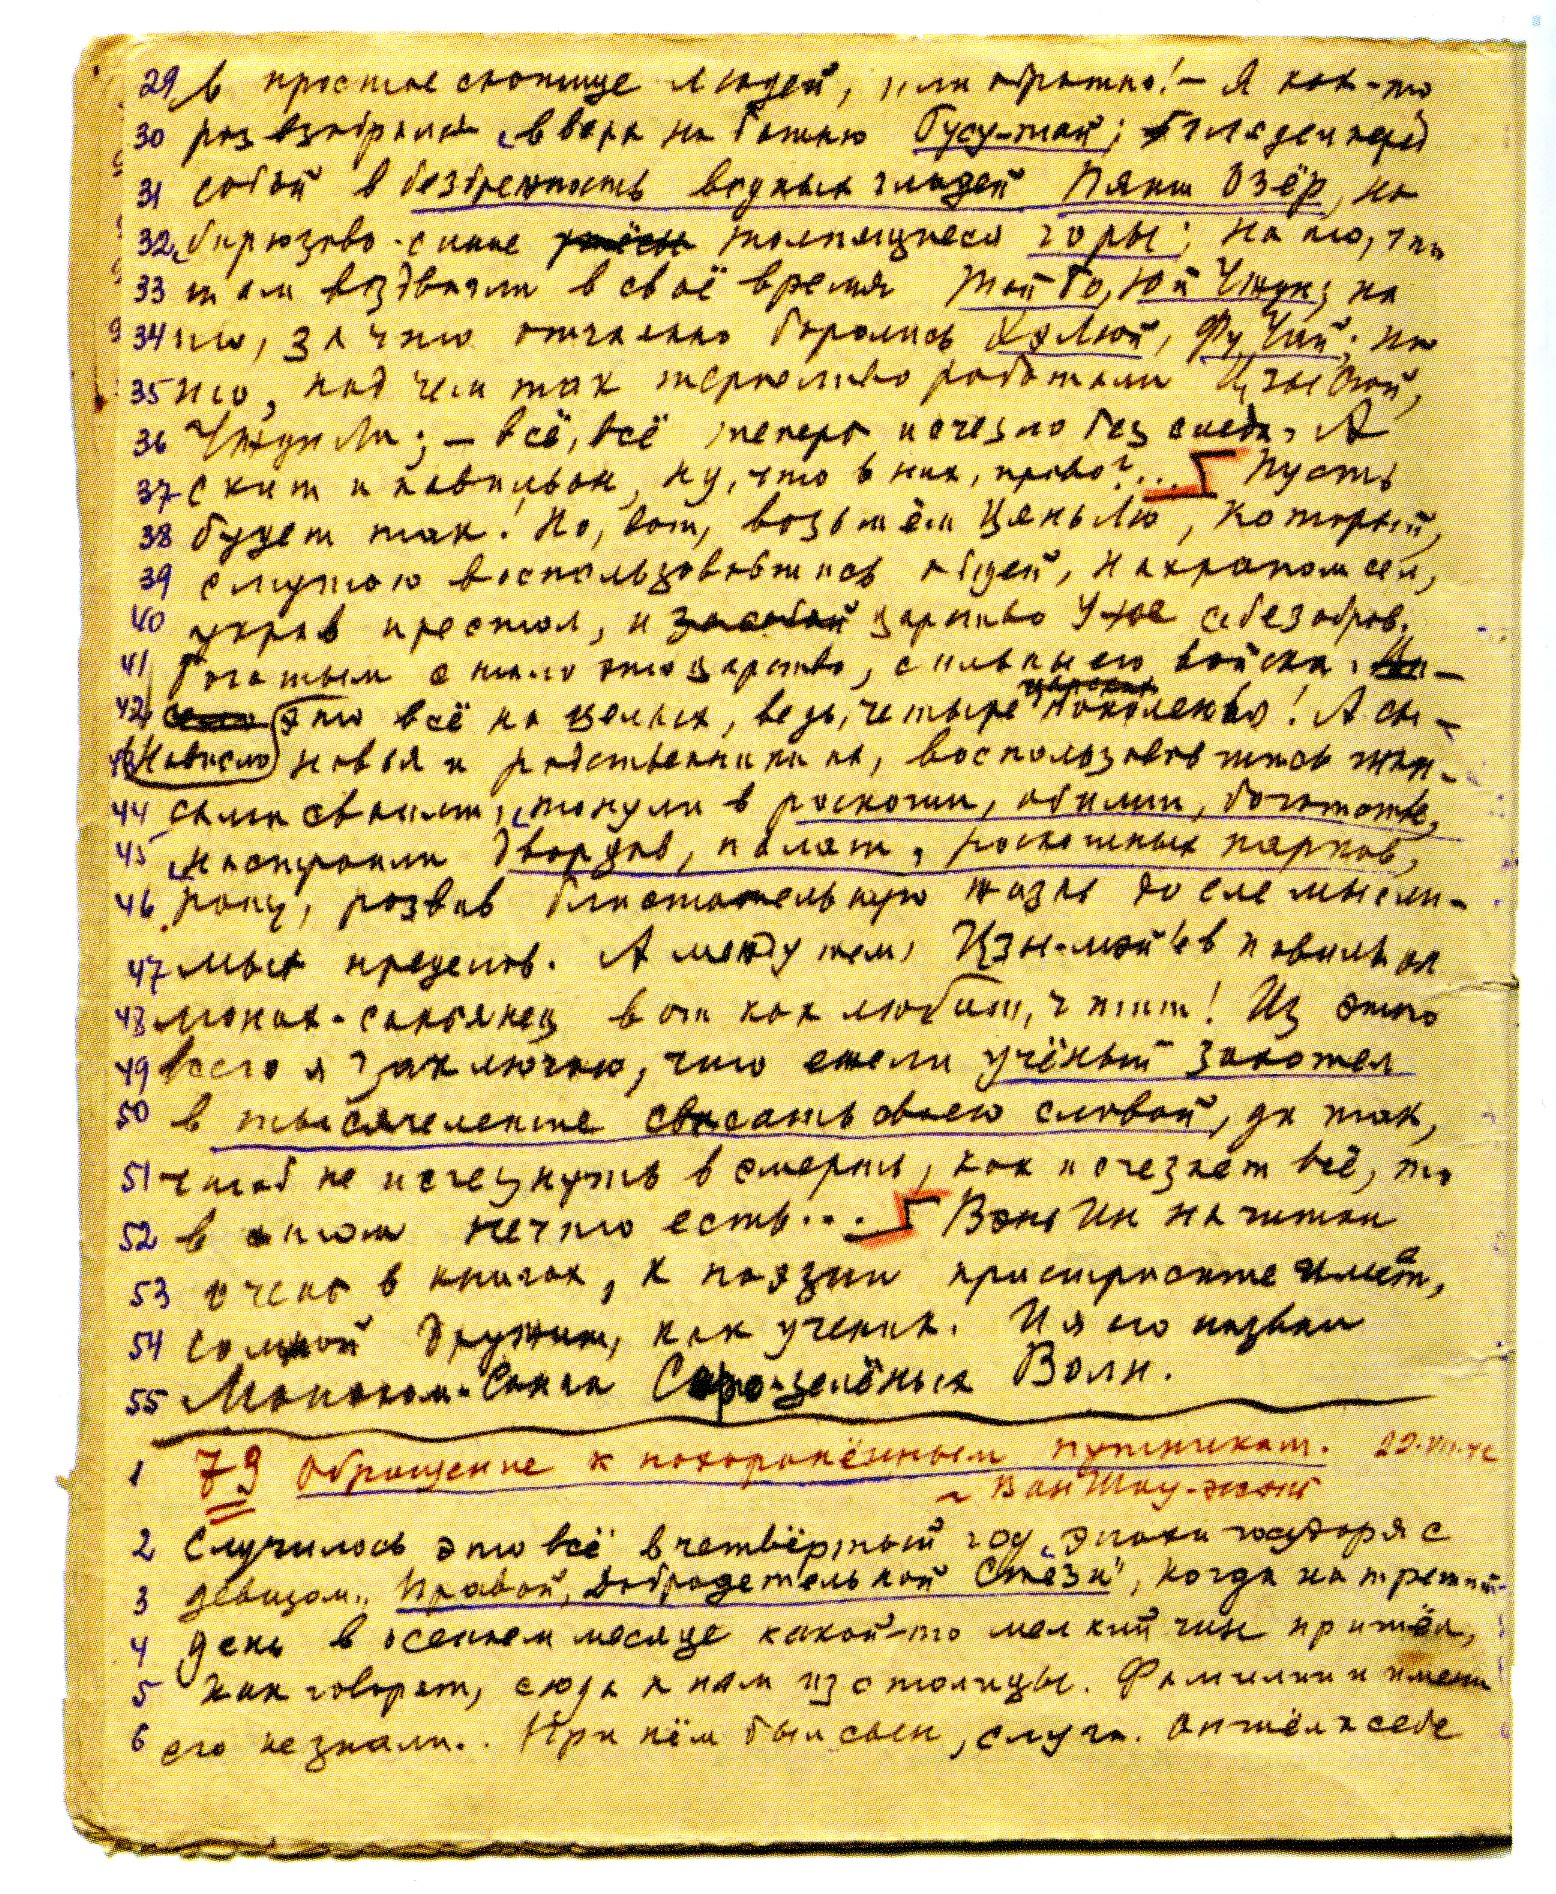 29 в простое скопище людей, или обратно! – Я как-то
30 раз взобрался вверх на башню Гусу-тай; глядел перед
31 собой в безбрежность водных гладей Пяти Озёр, на
32 бирюзово-синие толпящиеся горы; на то, что
33 там воздвигли в своё время Тай Бо, Юй Чжун; на
34 то, за что отчаянно боролись Хэ Люй, Фу Чай; на
35 то, над чем так терпеливо работали Цзы Сюй,
36 Чжун Ли; – всё, всё теперь исчезло без следа. А
37 скит и павильон, ну, что в них, право?... Пусть
38 будет так! Но, вот, возьмём Цянь Лю, который,
39 смутою воспользовавшись общей, нахрапом сел,
40 украв престол, и царство У-Юе себе забрав.
41 Богатым стало это царство, сильны его войска.
42 это всё на целых, ведь, четыре поколенья! А сы-
43 Нависло новья и родственники их, воспользовавшись
44 своими, тонули в роскоши, обилии, богатстве,
45 настроили дворцов, палат, роскошных парков,
46 рощ, развив блистательную жизнь до елемысли-
47 мых пределов. А между тем, Цзы-мэй'ев павильон
48 монах-скитянец вот как любит, чтит! Из этого
49 всего я заключаю, что ежели учёный захотел
50 в тысячелетие свисать своею славой, да так,
51 чтоб не исчезнуть в смерти, как исчезнет всё, то
52 в этом нечто есть... Вэнь Ин начитан
53 очень в книгах, к поэзии пристрастие имеет,
54 со мной дружит, как ученик. И я его назвал
55 Монахом-Скита Серо-зелёных Волн.
1 79 Обращение к похоронённым путникам.
Ван Шоу-жэнь
2 Случилось это всё в четвёртый год эпохи государя с
3 девизом „Правой, Добродетельной Стези", когда на третий
4 день в осеннем месяце какой-то мелкий чин пришёл,
5 как говорят, сюда к нам из столицы. Фамилии и имени
6 его не знали.. При нём был сын, слуга. Он шёл к себе